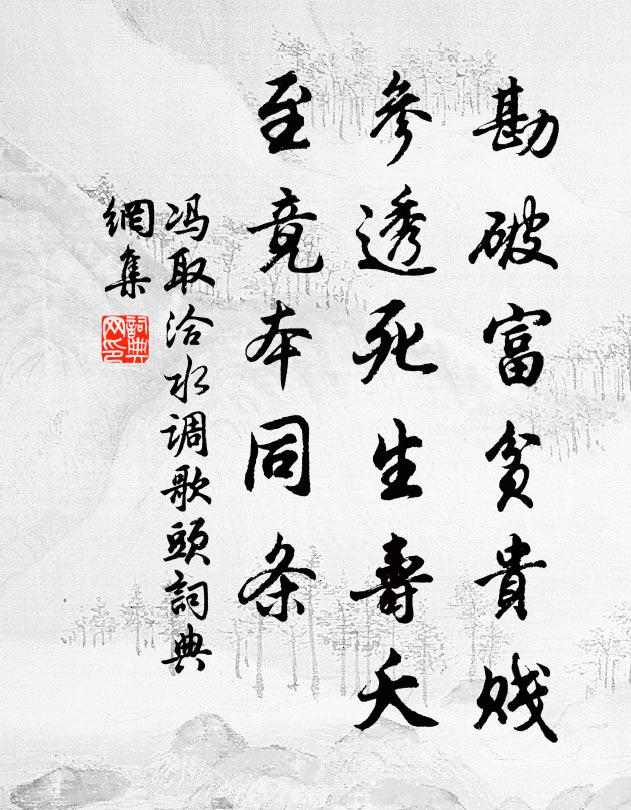 勘破富贫貴贱
參透死生壽夭
至竟本同条
冯取洽水调歌頭詞典
網集
詞典网印